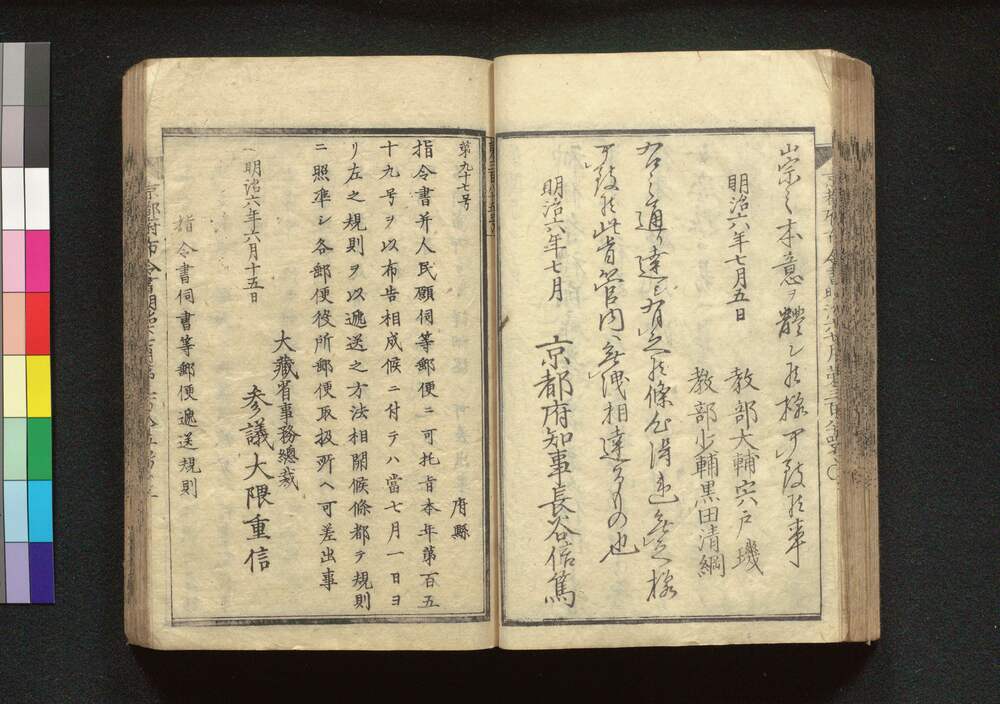 崇之本意ヲ體シ候様可致候事
明治六年七月五日
教部大輔宍戸璣
教部少輔黒田清綱
右之通リ達シ有之候條心得違無之様
可致候此旨管内ヘ無洩相達スルもの也
明治六年七月
京都府知事長谷信篤
第九十七号
府縣
指令書并人民願伺等郵便ニ可托旨本年第百五
十九号ヲ以布告相成候ニ付テハ當七月一日ヨ
リ左之規則ヲ以遞送之方法相開候條都テ規則
ニ照準シ各郵便役所郵便取扱所ヘ可差出事
明治六年六月十五日
大藏省事務總裁
参議大隈重信
指令書伺書等郵便遞送規則